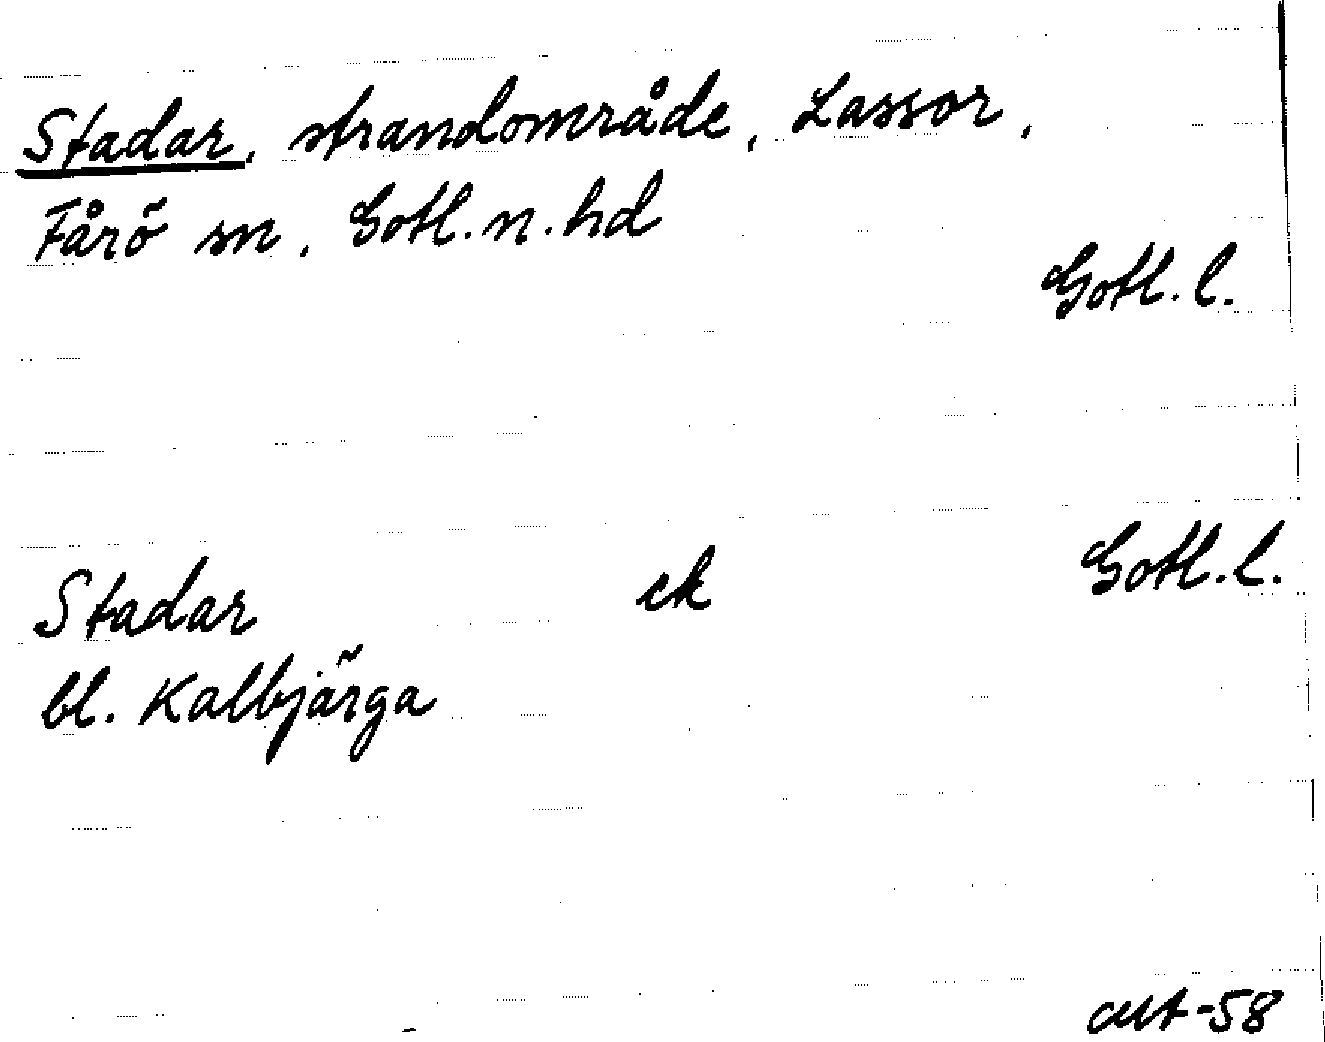 Stadar, strandområde, Lassor,
Fårö sn, Gotl. n. hd
Gotl. l.
Stadar ek Gotl. l.
bl. Kalbjärga
-58